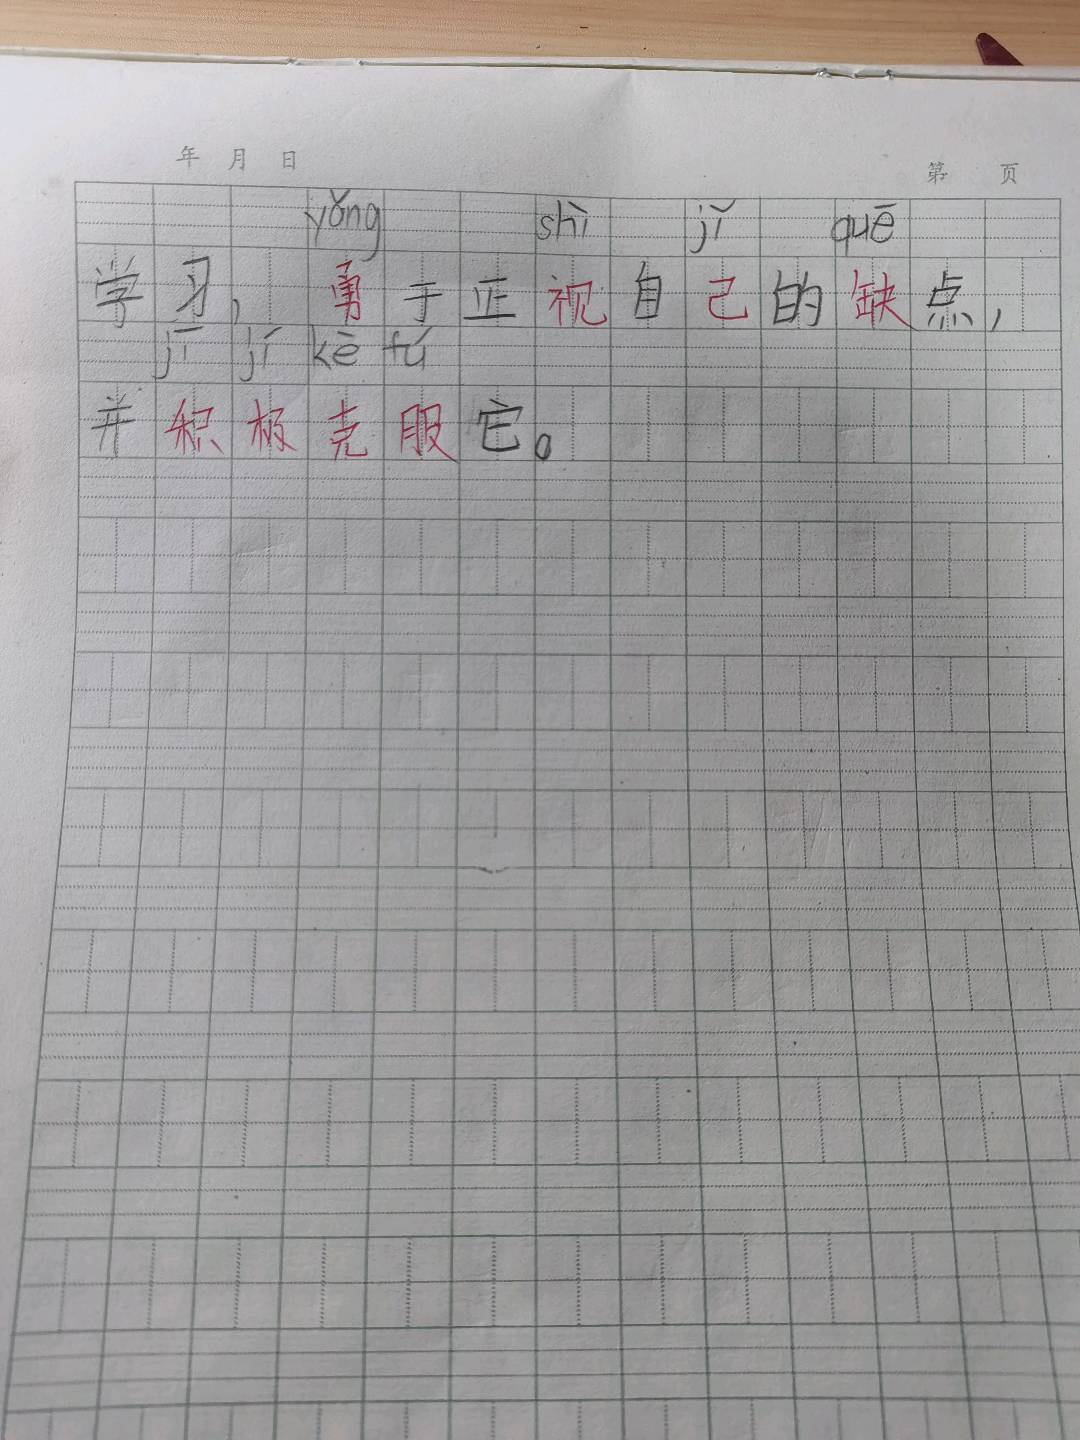 年 月 日
第 页
yǒng shì jǐ quē
学习，勇于正视自己的缺点，
jī jí kè fú
并积极克服它。